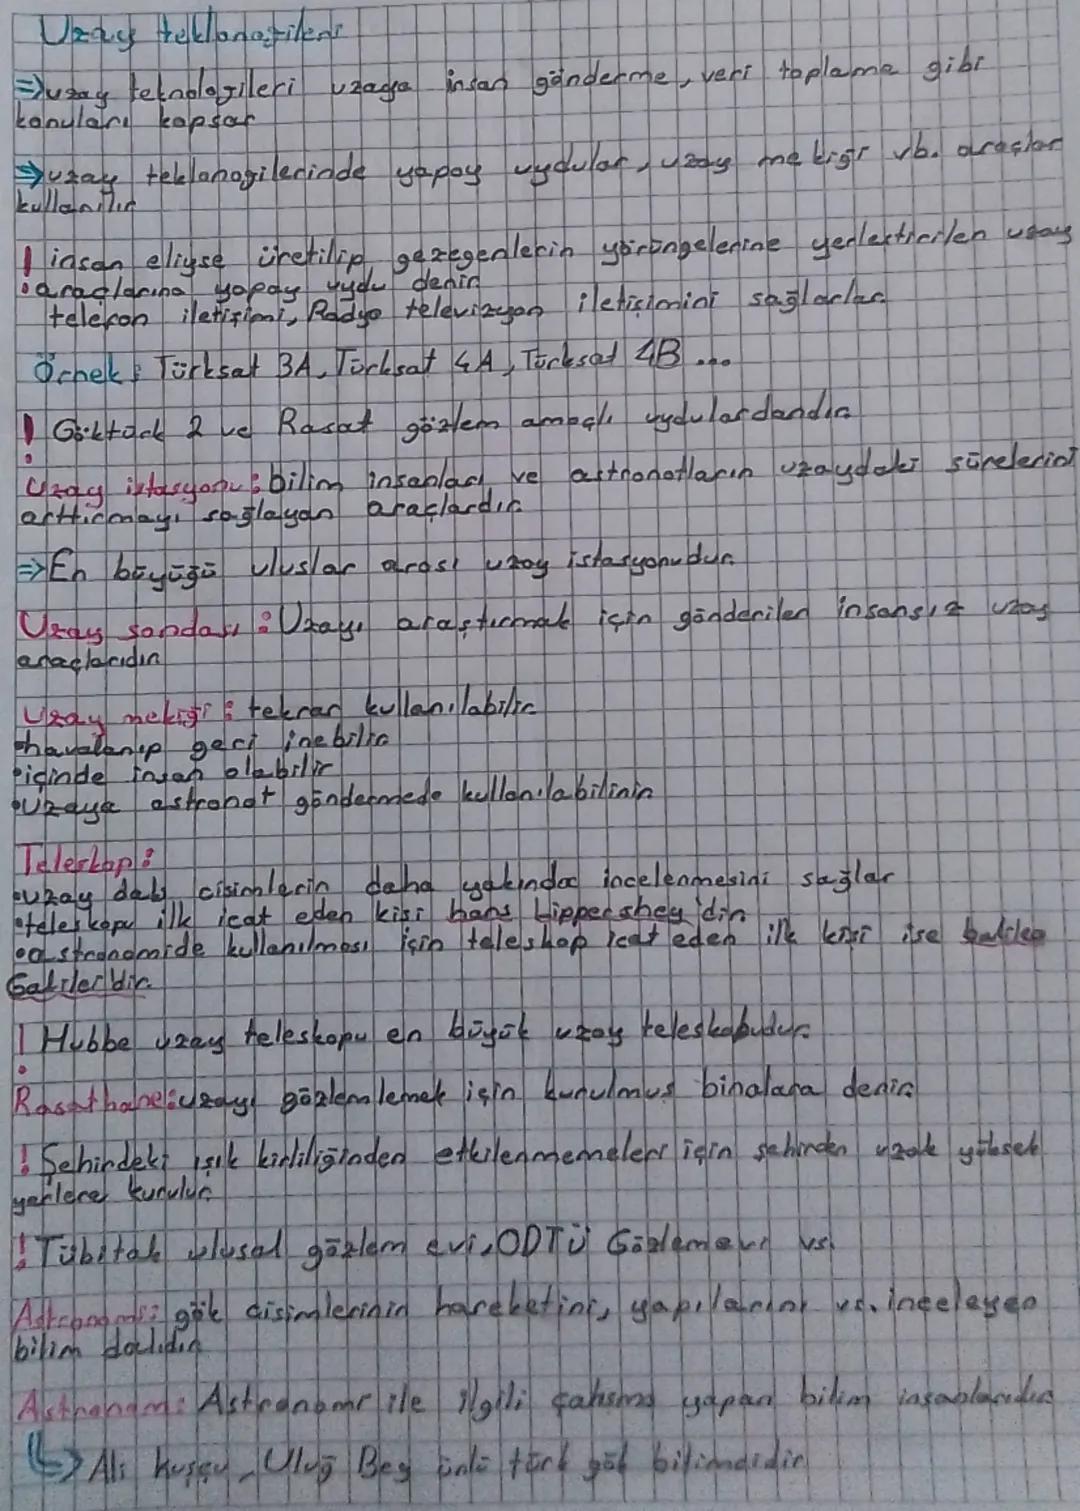 Uzay teklonojileri
⇒uzay teknolojileri uzaya insan gönderme, veri toplama gibi
konuları kapsar
⇒uzay teklonojilerinde yapay uydular, uzay mekiği vb. araçlar
kullanılır
! insan eliyse üretilip gezegenlerin yörüngelerine yerleştirilen uzay
araçlarına yapay uydu denir
telefon iletişimi, Radyo televizyon iletişimini sağlarlar
Örnek: Türksat 3A, Türksat 4A, Türksat 4B ...
! Göktürk 2 ve Rasat gözlem amaçlı uydulardandır
Uzay istasyonu: bilim insanları ve astronotların uzaydaki sürelerini
arttırmayı sağlayan araçlardır
⇒En büyüğü uluslar arası uzay istasyonudur
Uzay sondası: Uzayı araştırmak için gönderilen insansız uzay
araçlarıdır
Uzay mekiği: tekrar kullanılabilir
•havalanıp geri inebilir
•içinde insan olabilir
•Uzaya astronot göndermede kullanılabilinir
Teleskop:
•uzay daki cisimlerin daha yakından incelenmesini sağlar
•teleskopu ilk icat eden kişi hans Lippershey'dir
•astronomide kullanılması için teleskop icat eden ilk kişi ise
Galilei'dir
! Hubbe uzay teleskopu en büyük uzay teleskobudur.
Rasathane: uzayı gözlemlemek için kurulmuş binalara denir
! Şehirdeki ışık kirliliğinden etkilenmemeleri için şehirden uzak yüksek
yerlere kurulur
! Tübitak ulusal gözlem evi, ODTÜ Gözlemevi vs.
Astronomi: gök cisimlerinin hareketini, yapılarını vs. inceleyen
bilim dalıdır
Astronom: Astronomi ile ilgili çalışma yapan bilim insanlarıdır
↳ Ali kuşçu, Uluğ Bey ünlü türk gök bilimcidir